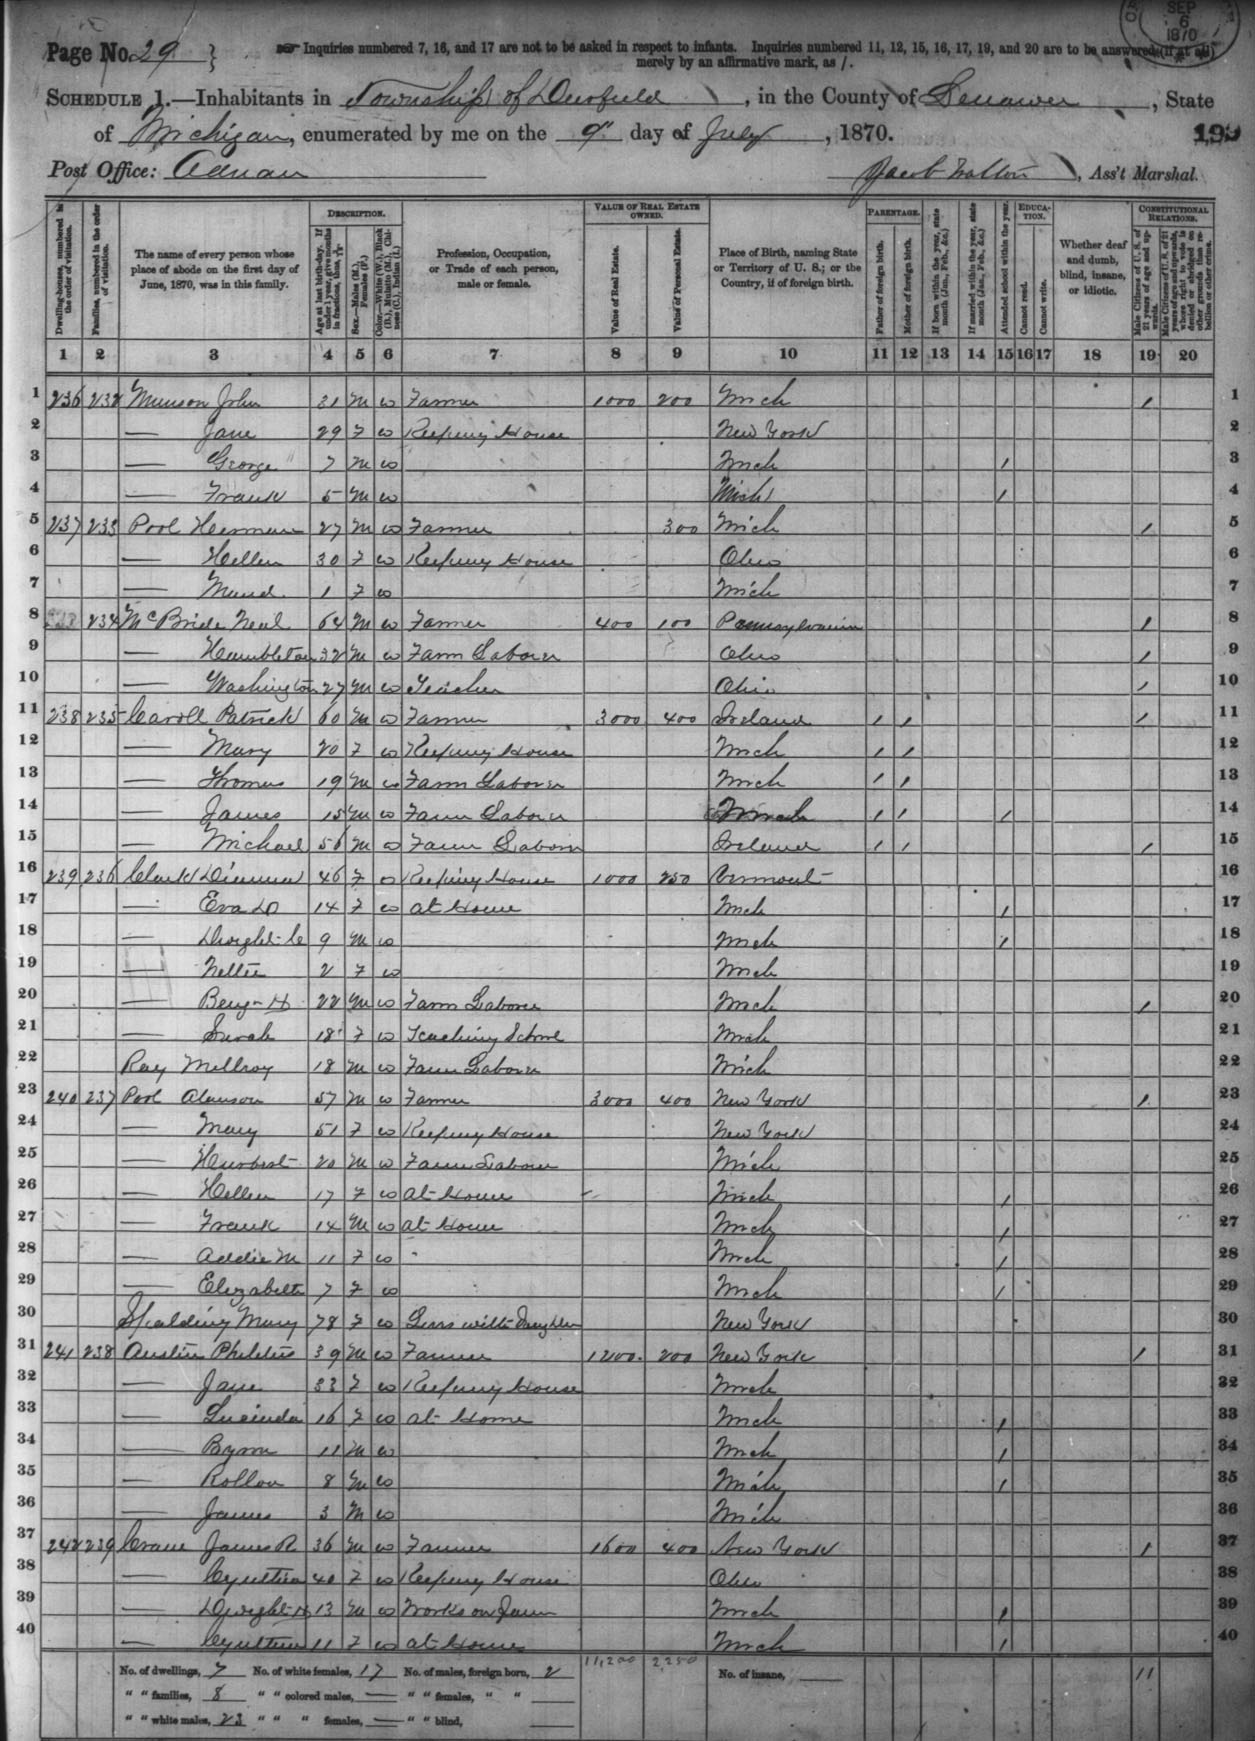 SEP
6
1870
Page No. 29 } Inquiries numbered 7, 16, and 17 are not to be asked in respect to infants. Inquiries numbered 11, 12, 15, 16, 17, 19, and 20 are to be answered (if at all)
merely by an affirmative mark, as /.
SCHEDULE 1.—Inhabitants in Township of Deerfield, in the County of Lenawee, State
of Michigan, enumerated by me on the 9" day of July, 1870.
Post Office: Adrian Jacob Walton, Ass't Marshal.
DESCRIPTION. VALUE OF REAL ESTATE OWNED. PARENTAGE. EDUCATION. CONSTITUTIONAL RELATIONS.
Dwelling-houses, numbered in the order of visitation.
Families, numbered in the order of visitation.
The name of every person whose place of abode on the first day of June, 1870, was in this family.
Age at last birth-day. If under 1 year, give months in fractions, thus, 3/12
Sex.—Males (M.), Females (F.)
Color.—White (W.), Black (B.), Mulatto (M.), Chinese (C.), Indian (I.)
Profession, Occupation, or Trade of each person, male or female.
Value of Real Estate.
Value of Personal Estate.
Place of Birth, naming State or Territory of U. S.; or the Country, if of foreign birth.
Father of foreign birth.
Mother of foreign birth.
If born within the year, state month (Jan., Feb., &c.)
If married within the year, state month (Jan., Feb., &c.)
Attended school within the year.
Cannot read.
Cannot write.
Whether deaf and dumb, blind, insane, or idiotic.
Male Citizens of U. S. of 21 years of age and upwards.
Male Citizens of U. S. of 21 years of age and upwards, whose right to vote is denied or abridged on other grounds than rebellion or other crime.
1 2 3 4 5 6 7 8 9 10 11 12 13 14 15 16 17 18 19 20
1 236 232 Munson John 31 M W Farmer 1000 200 Mich / 1
2 — Jane 29 F W Keeping House New York 2
3 — George 7 M W Mich / 3
4 — Frank 5 M W Mich / 4
5 237 233 Pool Herman 27 M W Farmer 300 Mich / 5
6 — Hellen 30 F W Keeping House Ohio 6
7 — Maud 1 F W Mich 7
8 234 McBride Neal 64 M W Farmer 400 100 Pennsylvania / 8
9 — Hambleton 32 M W Farm Laborer Ohio / 9
10 — Washington 27 M W Teacher Ohio / 10
11 238 235 Caroll Patrick 60 M W Farmer 3000 400 Ireland / / / 11
12 — Mary 20 F W Keeping House Mich / / 12
13 — Thomas 19 M W Farm Laborer Mich / / 13
14 — James 15 M W Farm Laborer Mich / / / 14
15 — Michael 56 M W Farm Laborer Ireland / / / 15
16 239 236 Clark 46 F W Keeping House 1000 250 Vermont 16
17 — Eva D 14 F W at Home Mich / 17
18 — Dwight C 9 M W Mich / 18
19 — Nettie 2 F W Mich 19
20 — Benj H 22 M W Farm Laborer Mich / 20
21 — Sarah 18 F W Teaching School Mich 21
22 Ray Mellroy 18 M W Farm Laborer Mich 22
23 240 237 Pool Alanson 57 M W Farmer 3000 400 New York / 23
24 — Mary 51 F W Keeping House New York 24
25 — Hurbert 20 M W Farm Laborer Mich 25
26 — Hellen 17 F W at Home Mich / 26
27 — Frank 14 M W at Home Mich / 27
28 — Addie M 11 F W Mich / 28
29 — Elizabeth 7 F W Mich / 29
30 Spalding Mary 78 F W Lives with Daughter New York 30
31 241 238 Austin Philetus 39 M W Farmer 1200 200 New York / 31
32 — Jane 33 F W Keeping House Mich 32
33 — Lucinda 16 F W at Home Mich / 33
34 — Byron 11 M W Mich / 34
35 — Rollon 8 M W Mich / 35
36 — James 3 M W Mich 36
37 242 239 Crane James R 36 M W Farmer 1600 400 New York / 37
38 — Cynthia 40 F W Keeping House Ohio 38
39 — Dwight H 13 M W Works on Farm Mich / 39
40 — Cynthia 11 F W at Home Mich / 40
No. of dwellings, 7 No. of white females, 17 No. of males, foreign born, 2 11,200 2,250 No. of insane, 11
" " families, 8 " " colored males, — " " females, " "
" " white males, 23 " " " females, — " " blind,